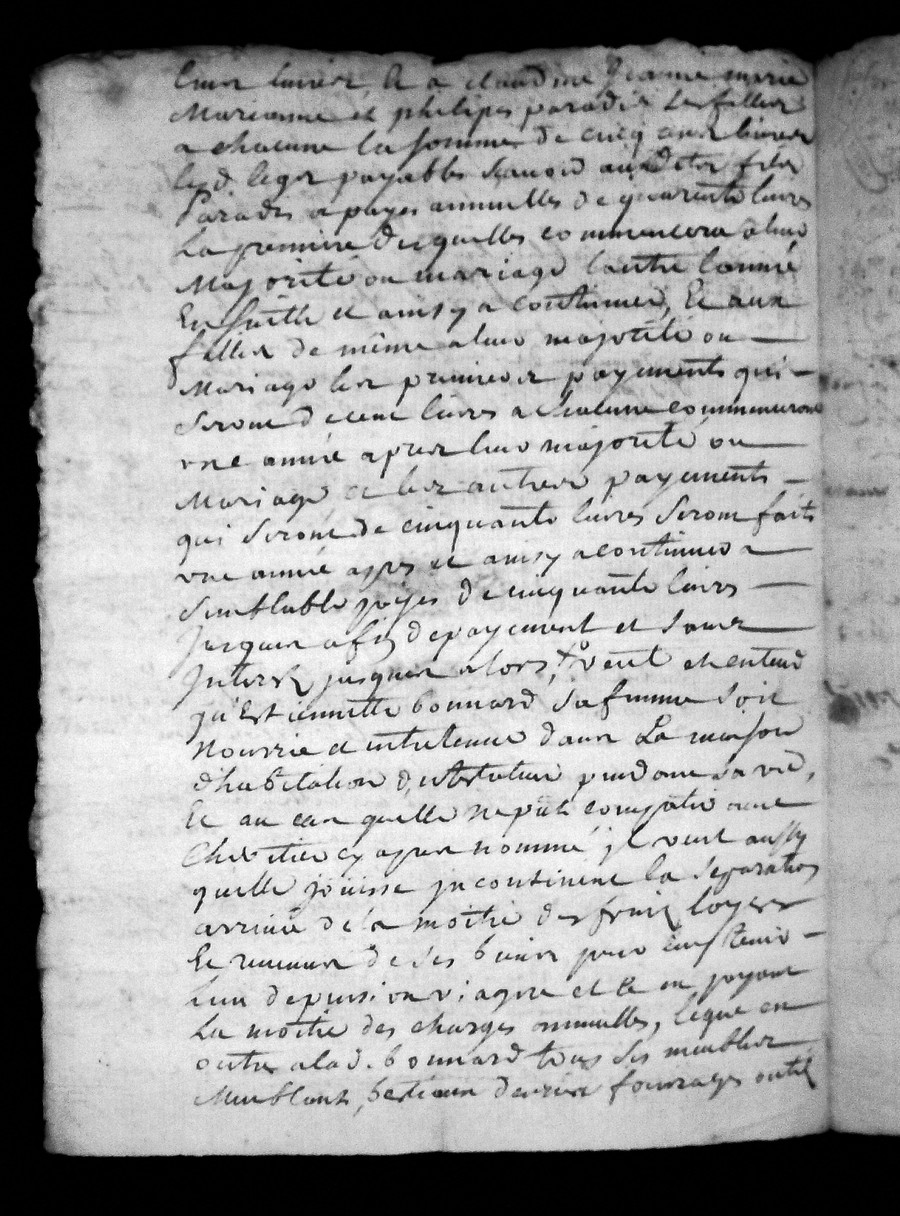 livres, Et a claudine Jeanne marie
Marianne et philipes paradis ses filles
a chacune la somme de cinq cens livres
led. legs payables scavoir auxdits fils
Paradis a payes annuelles de quarente livres
La premiere desquelles commencera a leur
Majorité ou mariage l'autre l'année
En suitte et ainsy a continuer, Et aux
filles de même a leur majorité ou
Mariage les premiers payements qui
Seront de cent livres a chacune commenceront
une année apres leur majorité ou
Mariage et les autres payements
qui seront de cinquante livres seront faits
une année apres et ainsy a continuer a
Semblable payes de cinquante livres
Jusques a fin de payement et sans
Interest jusques alors, veut et entend
qu'Estiennette bonnard sa femme soit
Nourrie et entretenue dans La maison
d'habitation du testateur pendant sa vie,
Et au cas quelle ne put compatir avec
L'héritier cy apres nommé, il veut aussy
quelle jouisse incontinent la separation
arrivée de la moitié des fruits loyers
Et revenus de ses biens pour luy tenir
lieu de pension viagere et ce en payant
La moitié des charges annuelles, legue en
outre a lad. bonnard tous ses meubles
Meublants, bestiaux denrées fourrages outils